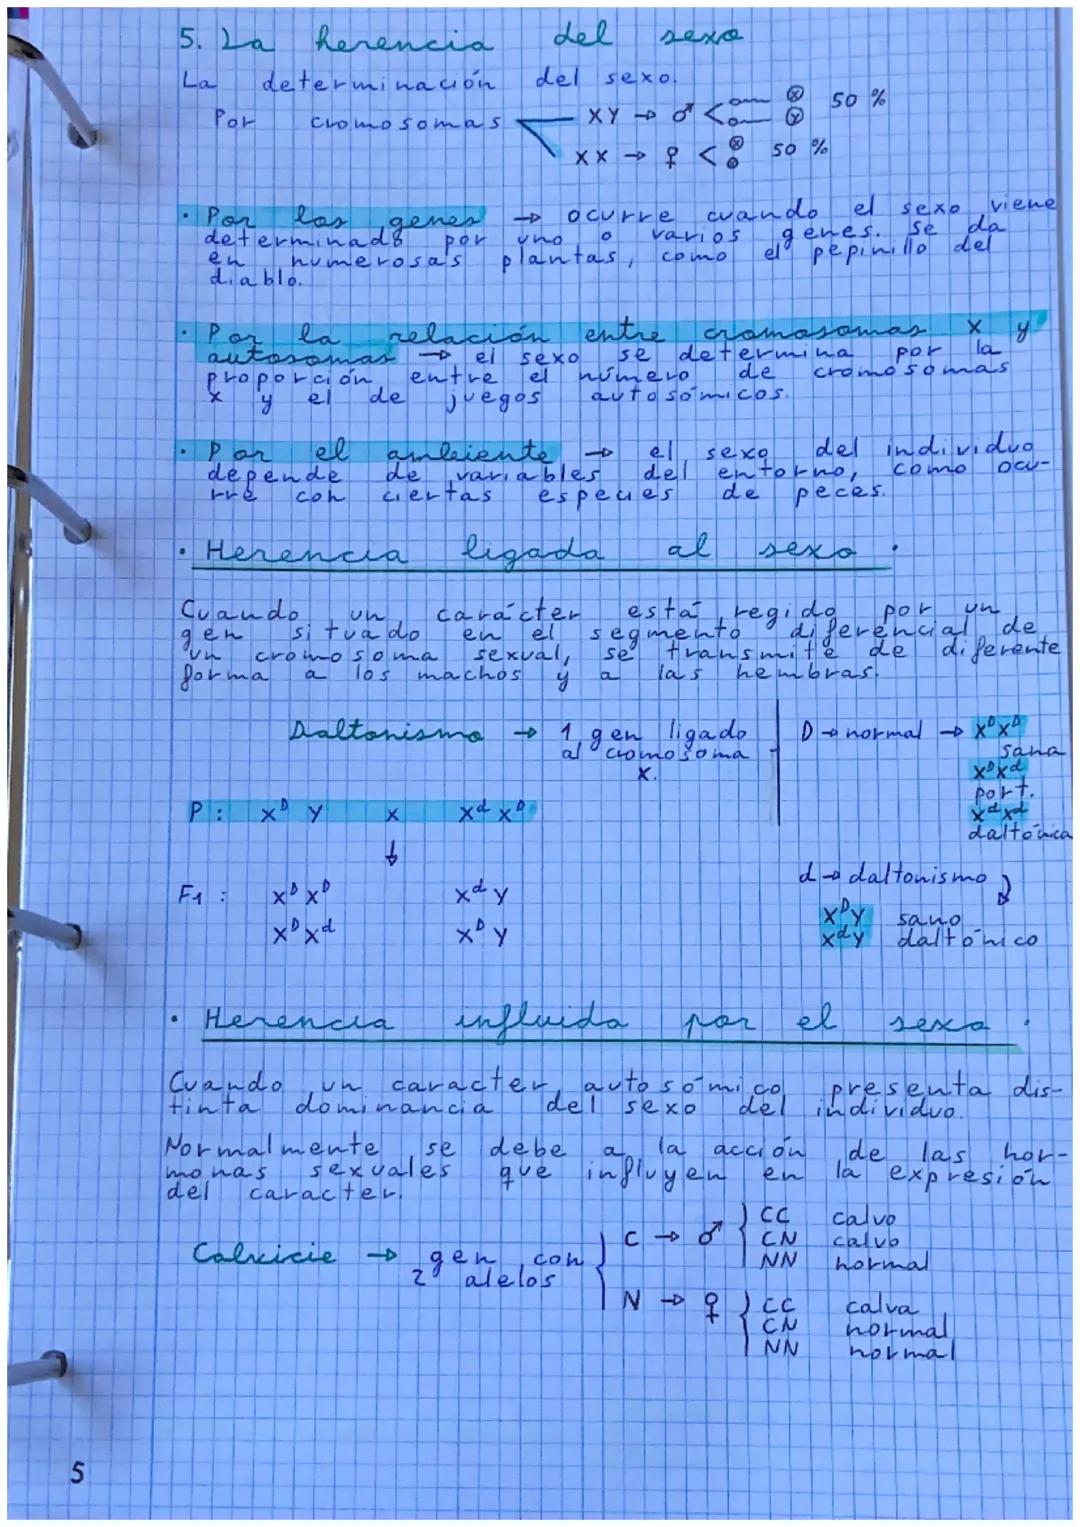 5. La herencia del sexo
La determinación del sexo.
Por cromosomas
XY → ♂ < X Y 50 %
XX → ♀ < X X 50 %
· Por los genes → ocurre cuando el sexo viene
determinado por uno o varios genes. Se da
en numerosas plantas, como el pepinillo del
diablo.
· Por la relación entre cromosomas X y
autosomas → el sexo se determina por la
proporción entre el número de cromosomas
X y el de juegos autosómicos.
· Por el ambiente → el sexo del individuo
depende de variables del entorno, como ocu-
rre con ciertas especies de peces.
· Herencia ligada al sexo.
Cuando un carácter está regido por un
gen situado en el segmento diferencial de
un cromosoma sexual, se transmite de diferente
forma a los machos y a las hembras.
Daltonismo → 1 gen ligado
al cromosoma
X.
D → normal → XᴰXᴰ
sana
XᴰXᵈ
port.
XᵈXᵈ
daltónica
P: Xᴰ Y x Xᵈ Xᴰ
↓
F1 : Xᴰ Xᴰ Xᵈ Y
Xᴰ Xᵈ Xᴰ Y
d → daltonismo
XᴰY sano
XᵈY daltónico
· Herencia influida por el sexo.
Cuando un caracter autosómico presenta dis-
tinta dominancia del sexo del individuo.
Normalmente se debe a la acción de las hor-
monas sexuales que influyen en la expresión
del caracter.
Calvicie → gen con
2 alelos
C → ♂
CC calvo
CN calvo
NN normal
N → ♀
CC calva
CN normal
NN normal
5